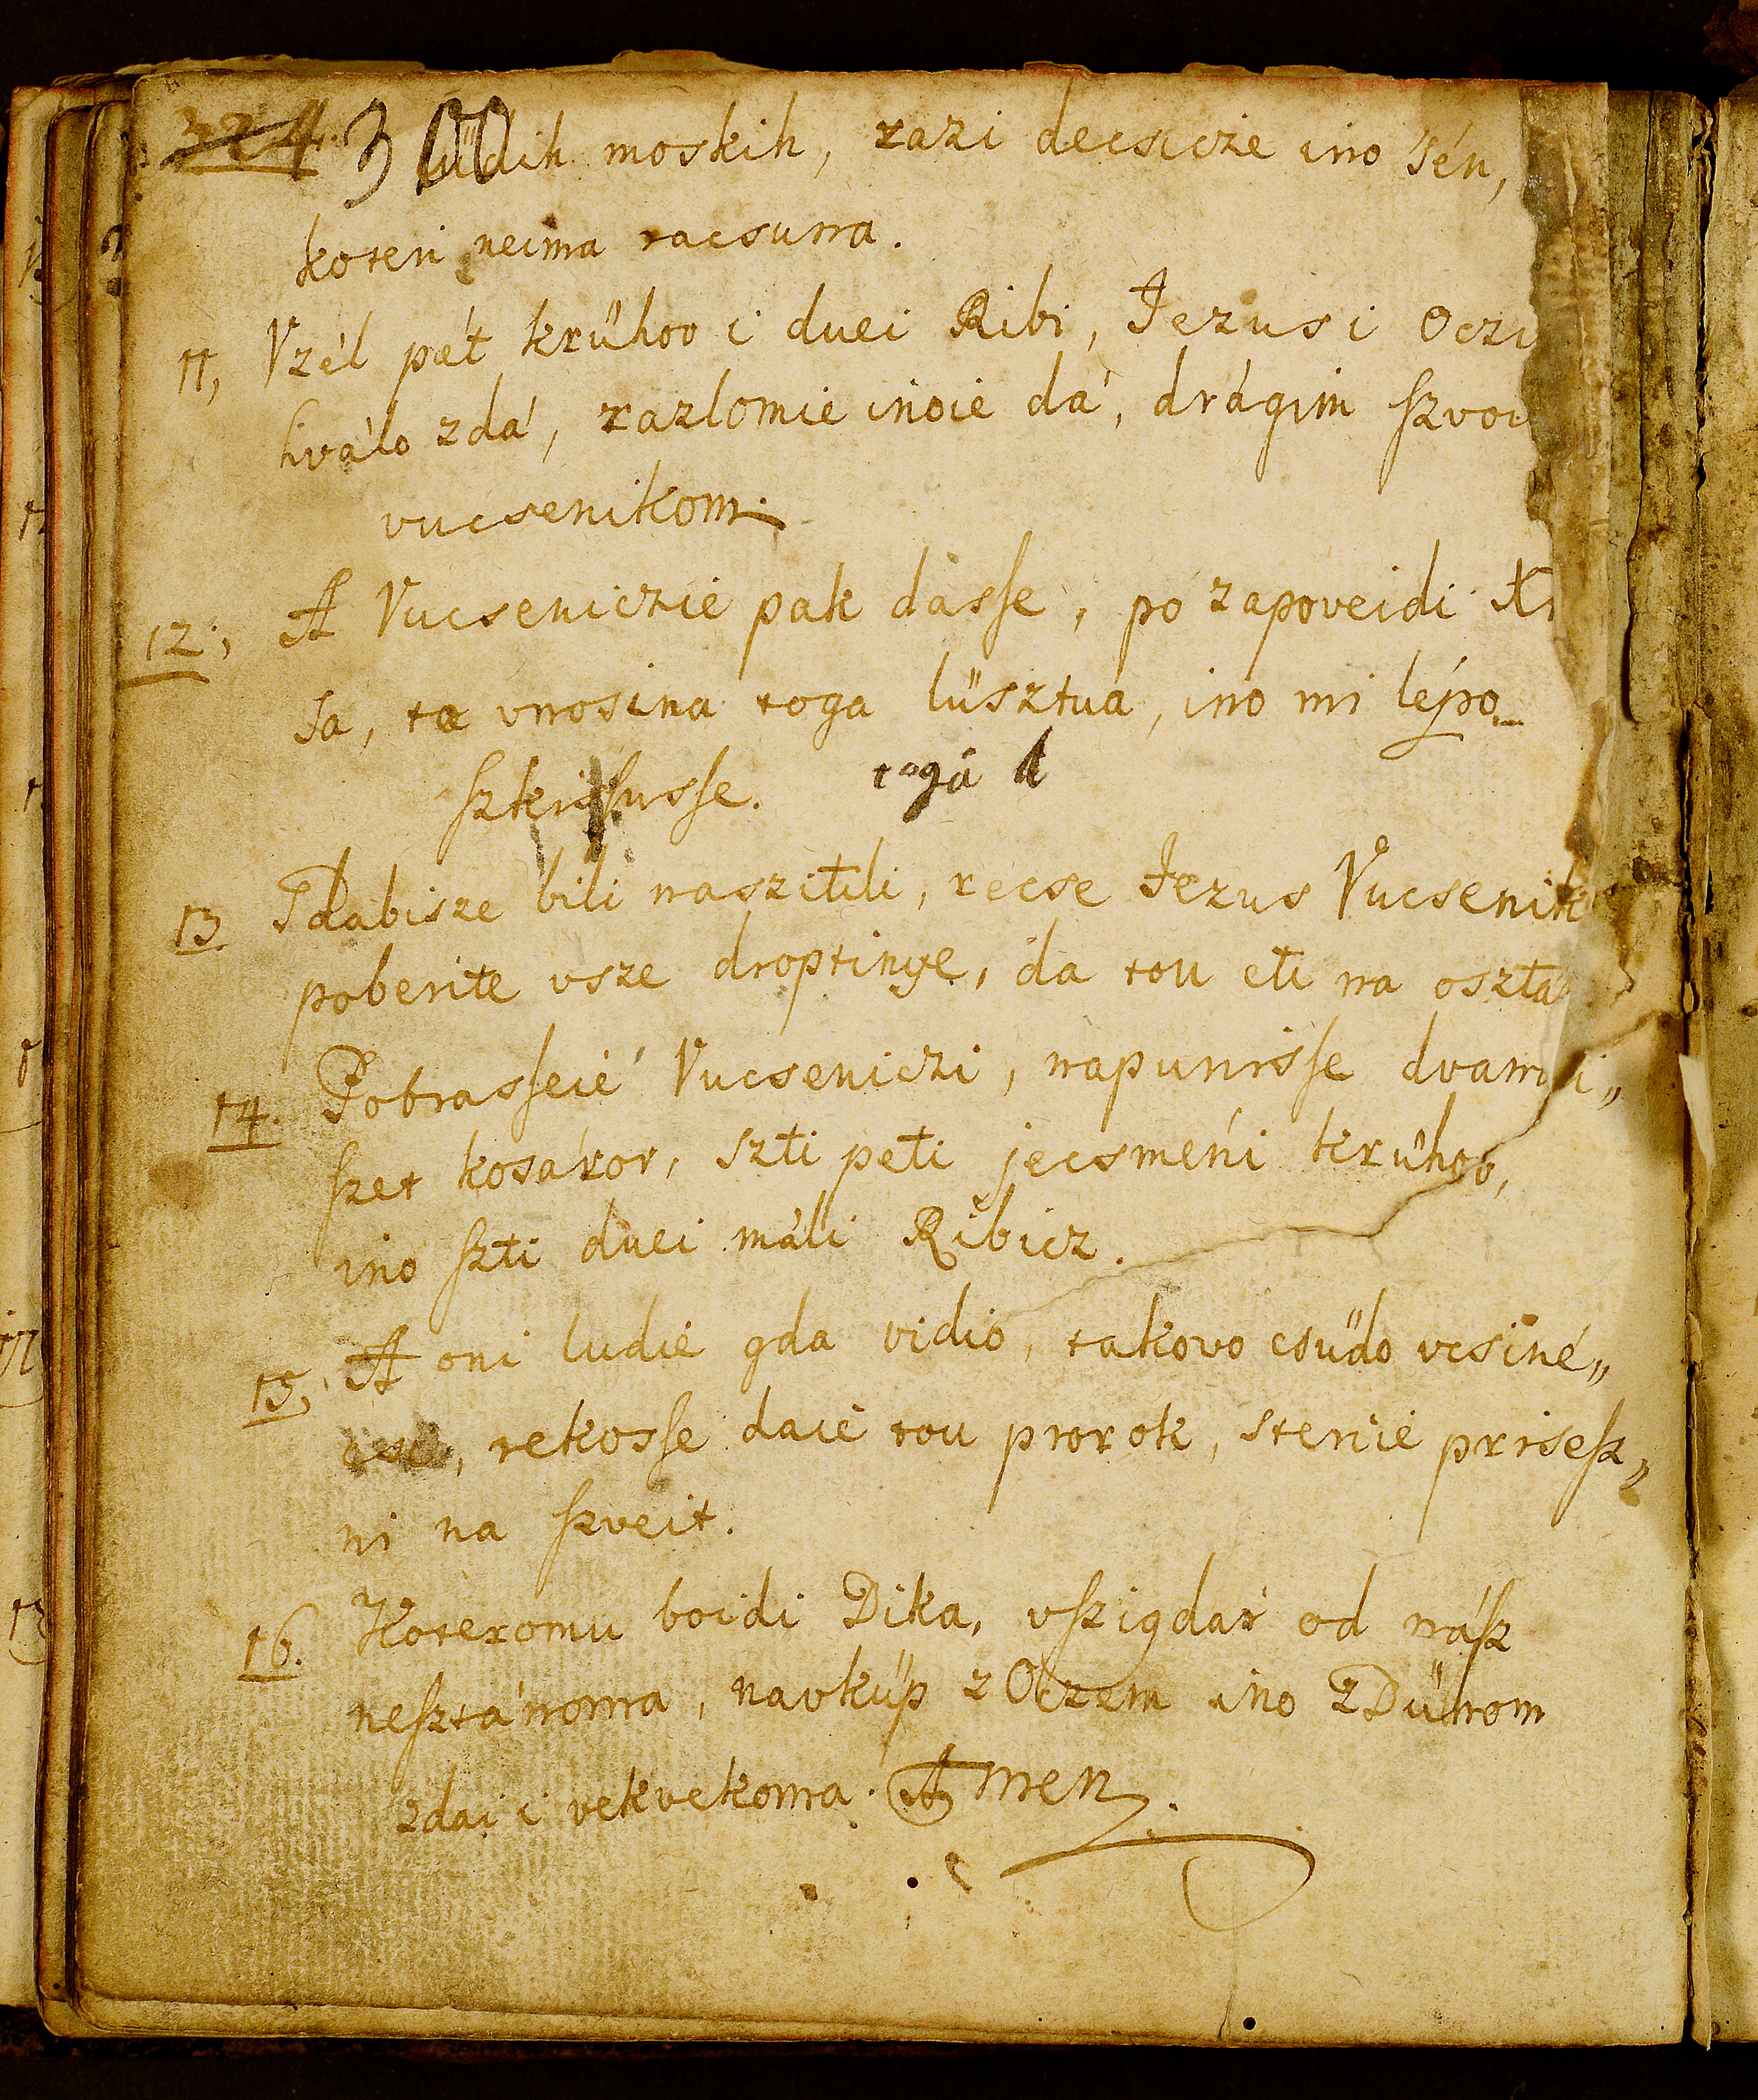 324. 300
ludih moskih, razi decsicze ino sén,
koteri neima racsuna.
11, Vzél pét krűhov i duei Ribi, Jezus i Oczu
hválo zdá, razlomie inoie dá, drágim ſzvoi
vucsenikom.
12; A Vucseniczié pak dasſe, po zapoveidi Kr
sa, ta vnosina toga lüsztua, ino mi lépo
ſzkrisſusſe. toga
13. I dabisze bili nasziteli, recse Jezus Vucsenik
poberite vsze droptinye, da tou eti na oszta
14. Pobrasſeié Vucseniczi, napunisſe dvanai„
ſzet kosárov, szti peti jecsméni krűhov,
ino ſzti duei máli Ribicz.
15, A oni ludié gda vidio, takovo csűdo vcsiné„
rekosſe daié tou prorok, sterié priseſz„
ni na ſzveit.
16. Koteromu boidi Dika, vſzigdár od náſz
neſztánoma, navküp z Oczem ino z Dűhom
zdai i vekvekoma. Amen.